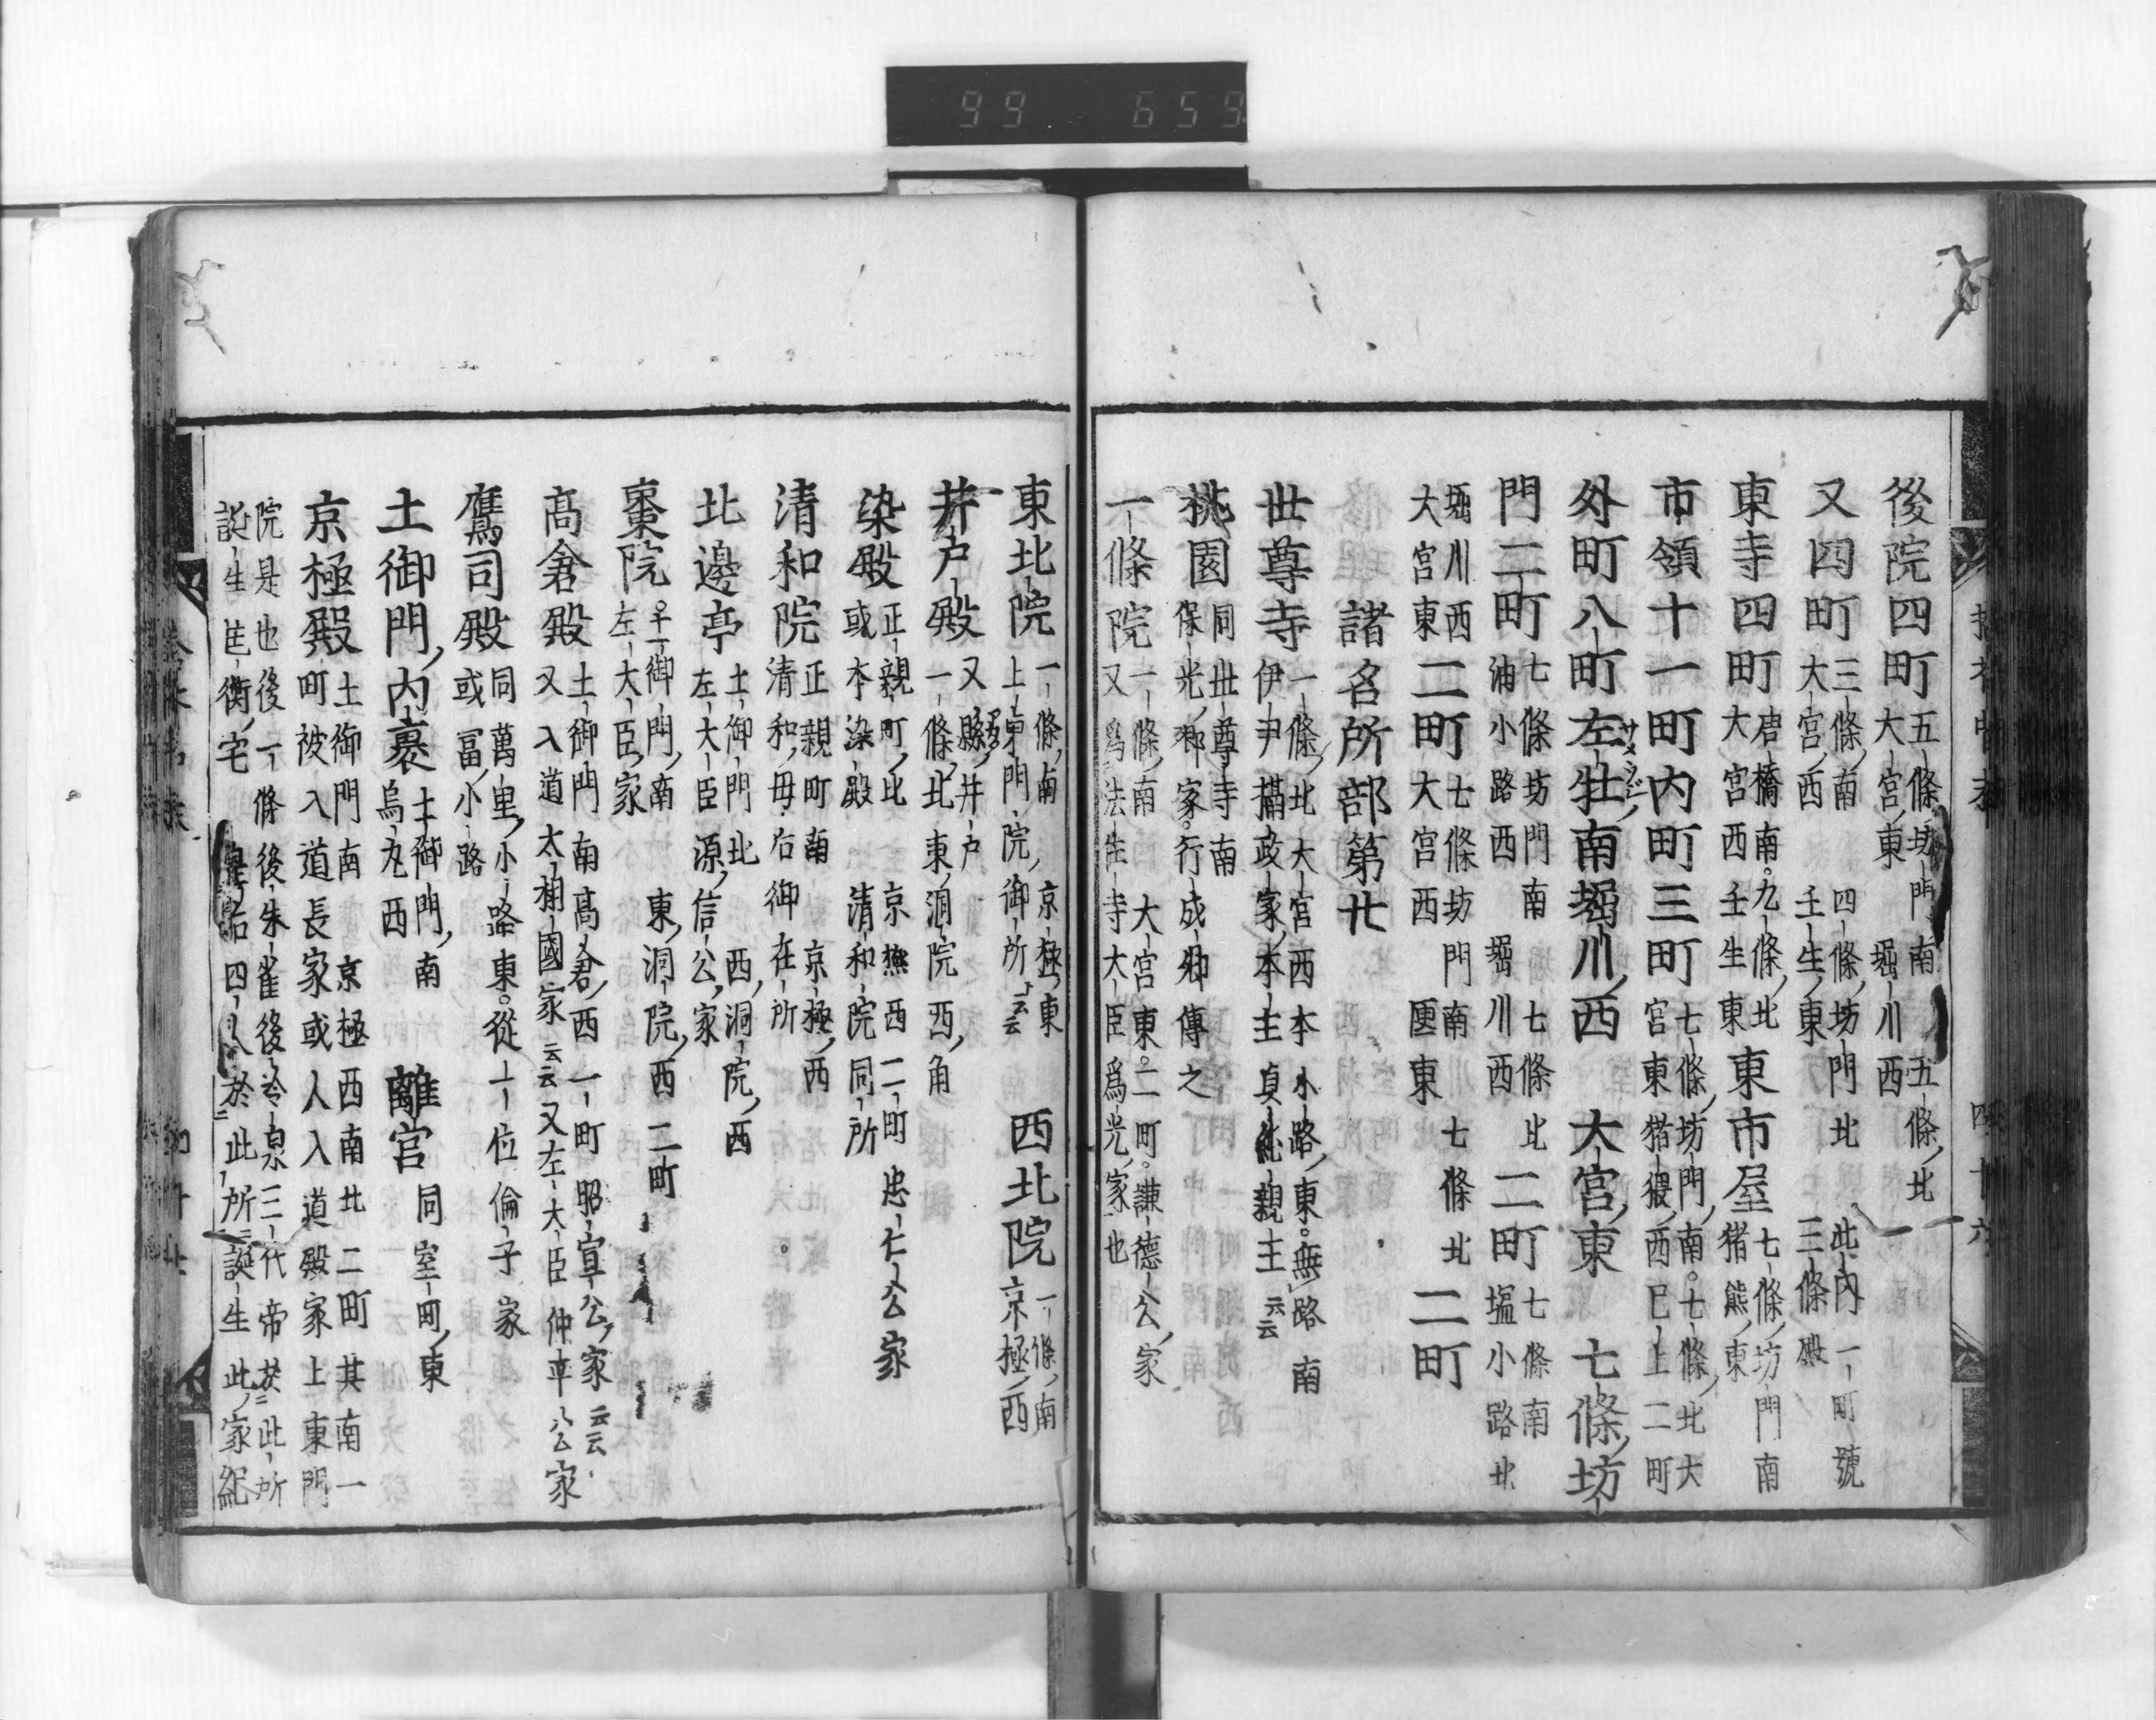 99 659
後院四町
五條坊門南
大宮東
堀川西
五條北
又四町
三條南
大宮西
四條坊門北
壬生東
此內一町號
三條殿
東寺四町
唐橋南九條北
大宮西壬生東
東市屋
七條坊門南
猪熊東
市領十一町內町三町
七條坊門南七條北大
宮東猪隈西巳上二町
外町八町左牡南堀川西 大宮東 七條坊
門二町
七條坊門南
油小路西
堀川西
七條北
二町
七條南
塩小路北
堀川西
大宮東
二町
七條坊門南
大宮西
匣東
七條北
二町
諸名所部第廿
世尊寺
一條北大宮西本小路東無路南
伊尹攝政家本主貞純親王云云
桃園
同世尊寺南
保光卿家行成卿傳之
一條院
一條南大宮東二町謙德公家
又爲法住寺大臣爲光家也
東北院
一條南京極東
上東門院御所云云
西北院
一條南
京極西
井戶殿
又縣井戶
一條北東洞院西角
染殿
正親町北京極西二町忠仁公家
或本染殿清和院同所
清和院
正親町南京極西
清和母后御在所
北邊亭
土御門北西洞院西
左大臣源信公家
棗院
土御門南東洞院西二町
左大臣家
高倉殿
土御門南高倉西一町昭宣公家云云
又入道太相國家云云又左大臣仲平公家
鷹司殿
同萬里小路東從一位倫子家
或冨小路
土御門內裏
土御門南
烏丸西
離宮
同室町東
京極殿
土御門南京極西南北二町其南一
町被入道長家或人入道殿家上東門
院是也後一條後朱雀後冷泉三代帝於此所
誕生匡衡宅
四人於此所誕生此家紀